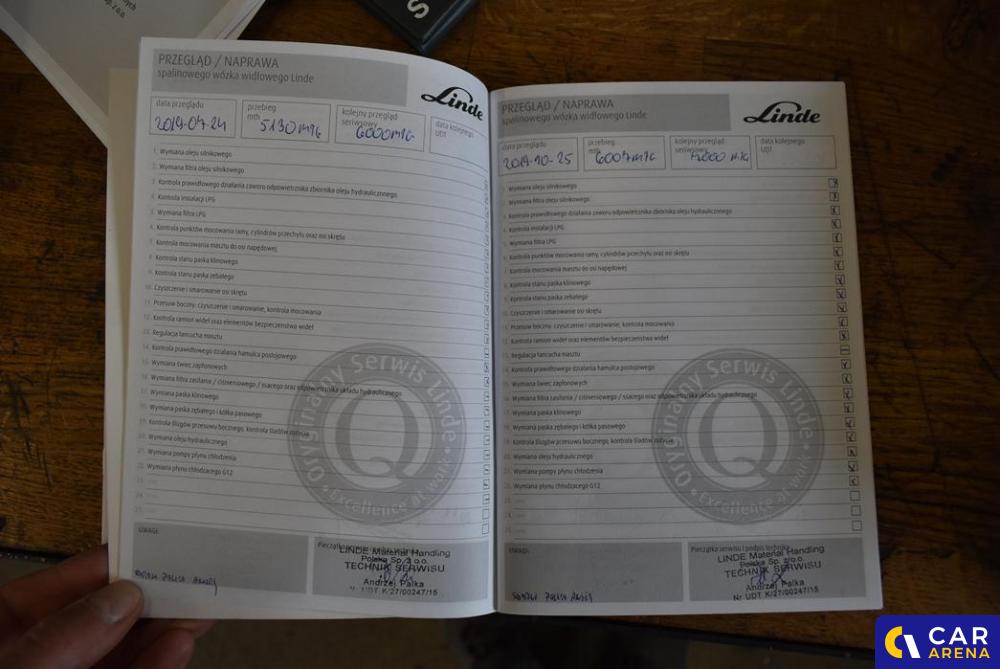 nych
sp. z o.o.
S
PRZEGLĄD / NAPRAWA
spalinowego wózka widłowego Linde
Linde
data przeglądu
2019-04-24
przebieg
mth
5130 mtg
kolejny przegląd
serwisowy
6000 mtg
data kolejnego
UDT
1. Wymiana oleju silnikowego
2. Wymiana filtra oleju silnikowego
3. Kontrola prawidłowego działania zaworo odpowietrznika zbiornika oleju hydraulicznego
4. Kontrola instalacji LPG
5. Wymiana filtra LPG
6. Kontrola punktów mocowania ramy, cylindrów przechyłu oraz osi skrętu
7. Kontrola mocowania masztu do osi napędowej
8. Kontrola stanu paska klinowego
9. Kontrola stanu paska zębatego
10. Czyszczenie i smarowanie osi skrętu
11. Przesuw boczny: czyszczenie i smarowanie, kontrola mocowania
12. Kontrola ramion wideł oraz elementów bezpieczeństwa wideł
13. Regulacja łańcucha masztu
14. Kontrola prawidłowego działania hamulca postojowego
15. Wymiana świec zapłonowych
16. Wymiana filtra zasilania / ciśnieniowego / ssacego oraz odpowietrznika układu hydraulicznego
17. Wymiana paska klinowego
18. Wymiana paska zębatego i kółka pasowego
19. Kontrola ślizgów przesuwu bocznego, kontrola śladów zużycia
20. Wymiana oleju hydraulicznego
21. Wymiana pompy płynu chłodzenia
22. Wymiana płynu chłodzącego G12
23.
24.
25.
Oryginalny Serwis Linde
Q
Excellence at work
UWAGI:
Pieczątka serwisu i podpis technika
LINDE Material Handling
Polska Sp. z o.o.
TECHNIK SERWISU
Andrzej Palka
Nr UDT K/27/00247/15
PRZEGLĄD / NAPRAWA
spalinowego wózka widłowego Linde
Linde
data przeglądu
2019-10-25
przebieg
mth
6007 mtg
kolejny przegląd
serwisowy
data kolejnego
UDT
1. Wymiana oleju silnikowego
2. Wymiana filtra oleju silnikowego
3. Kontrola prawidłowego działania zaworo odpowietrznika zbiornika oleju hydraulicznego
4. Kontrola instalacji LPG
5. Wymiana filtra LPG
6. Kontrola punktów mocowania ramy, cylindrów przechyłu oraz osi skrętu
7. Kontrola mocowania masztu do osi napędowej
8. Kontrola stanu paska klinowego
9. Kontrola stanu paska zębatego
10. Czyszczenie i smarowanie osi skrętu
11. Przesuw boczny: czyszczenie i smarowanie, kontrola mocowania
12. Kontrola ramion wideł oraz elementów bezpieczeństwa wideł
13. Regulacja łańcucha masztu
14. Kontrola prawidłowego działania hamulca postojowego
15. Wymiana świec zapłonowych
16. Wymiana filtra zasilania / ciśnieniowego / ssacego oraz odpowietrznika układu hydraulicznego
17. Wymiana paska klinowego
18. Wymiana paska zębatego i kółka pasowego
19. Kontrola ślizgów przesuwu bocznego, kontrola śladów zużycia
20. Wymiana oleju hydraulicznego
21. Wymiana pompy płynu chłodzenia
22. Wymiana płynu chłodzącego G12
23.
24.
25.
Oryginalny Serwis Linde
Q
Excellence at work
UWAGI:
Pieczątka serwisu i podpis technika
LINDE Material Handling
Polska Sp. z o.o.
TECHNIK SERWISU
Andrzej Palka
Nr UDT K/27/00247/15
CAR
ARENA